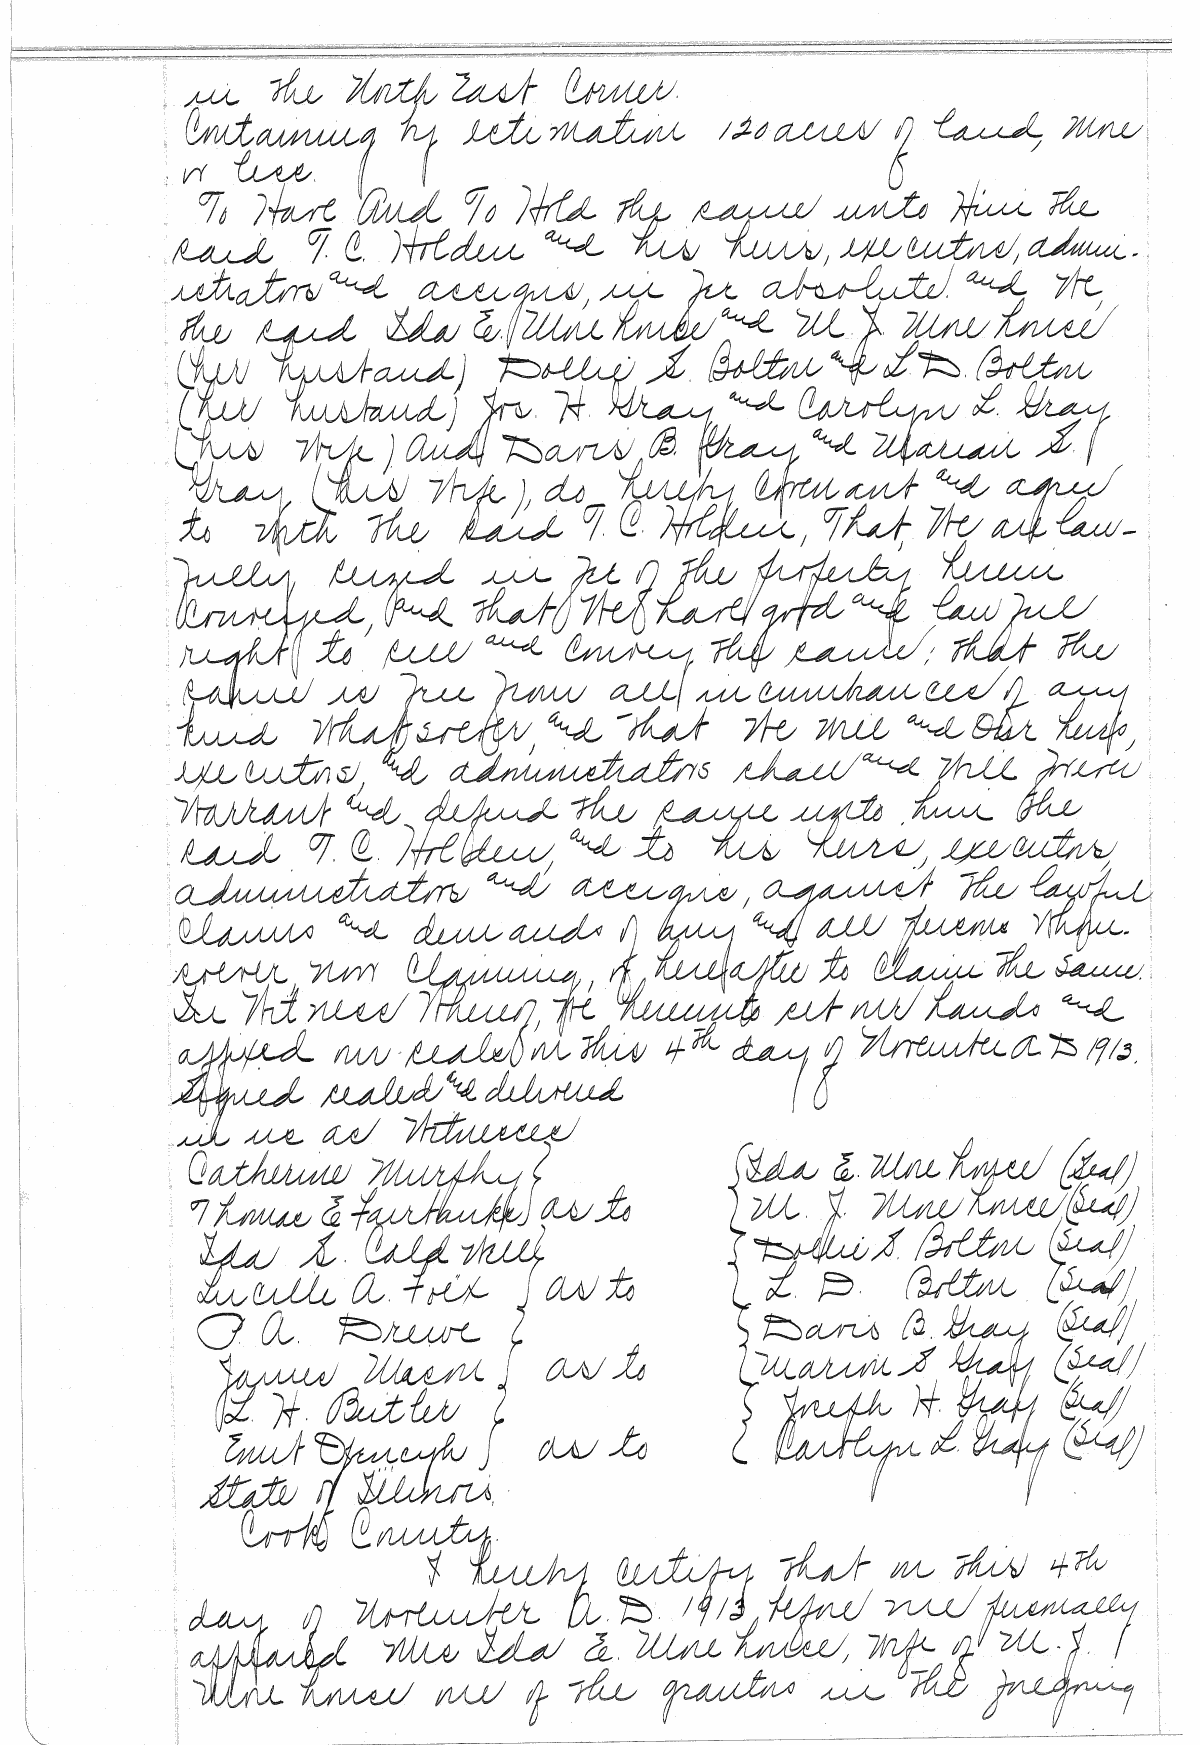 in the North East Corner.
Containing by estimation 120 acres of land, more
or less.
To Have And To Hold the same unto Him the
said T. C. Holden and his heirs, executors, admin-
istrators and assigns, in fee absolute. and We,
the said Ida E. Morehouse and M. J. Morehouse
(her husband) Dollie S. Bolton and L. D. Bolton
(her husband) Jos. H. Gray and Carolyn L. Gray
(his Wife) And Davis B. Gray and Marian S.
Gray (his Wife), do hereby Covenant and agree
to with the said T. C. Holden, That, We are law-
fully seized in fee of the property herein
Conveyed, and that We have good and lawful
right to sell and Convey the same; that the
same is free from all incumbrances of any
kind Whatsoever, and that We will and Our heirs,
executors, and administrators shall and Will forever
Warrant and defend the same unto him the
said T. C. Holden, and to his heirs, executors,
administrators and assigns, against the lawful
Claims and demands of any and all persons Whom-
soever, now Claiming, or hereafter to Claim the Same.
In Witness Whereof, We hereunto set our hands and
affixed our seals on this 4th day of November A D 1913.
Signed sealed and delivered
in us as Witnesses
Catherine Murphy } {Ida E. Morehouse (Seal)
Thomas E Fairbanks } as to { M. J. Morehouse (Seal)
Ida S. Caldwell } { Dollie S. Bolton (Seal)
Lucille A. Foex } as to { L. D. Bolton (Seal)
P. A. Drewe } { Davis B. Gray (Seal)
James Mason } as to { Marion S Gray (Seal)
L. H. Butler } { Joseph H. Gray (Seal)
Emit } as to { Carolyn L. Gray (Seal)
State of Illinois,
Cook County.
I hereby certify that on this 4th
day of November A. D. 1913, before me personally
appeared Mrs Ida E. Morehouse, Wife of M. J.
Morehouse one of the grantors in the foregoing